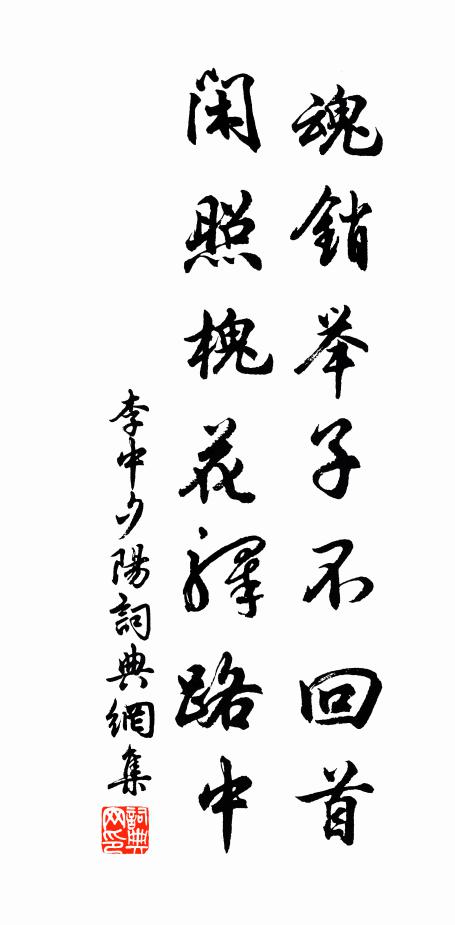 魂銷举子不回首
闲照槐花驛路中
李中夕陽詞典網集
詞典网印